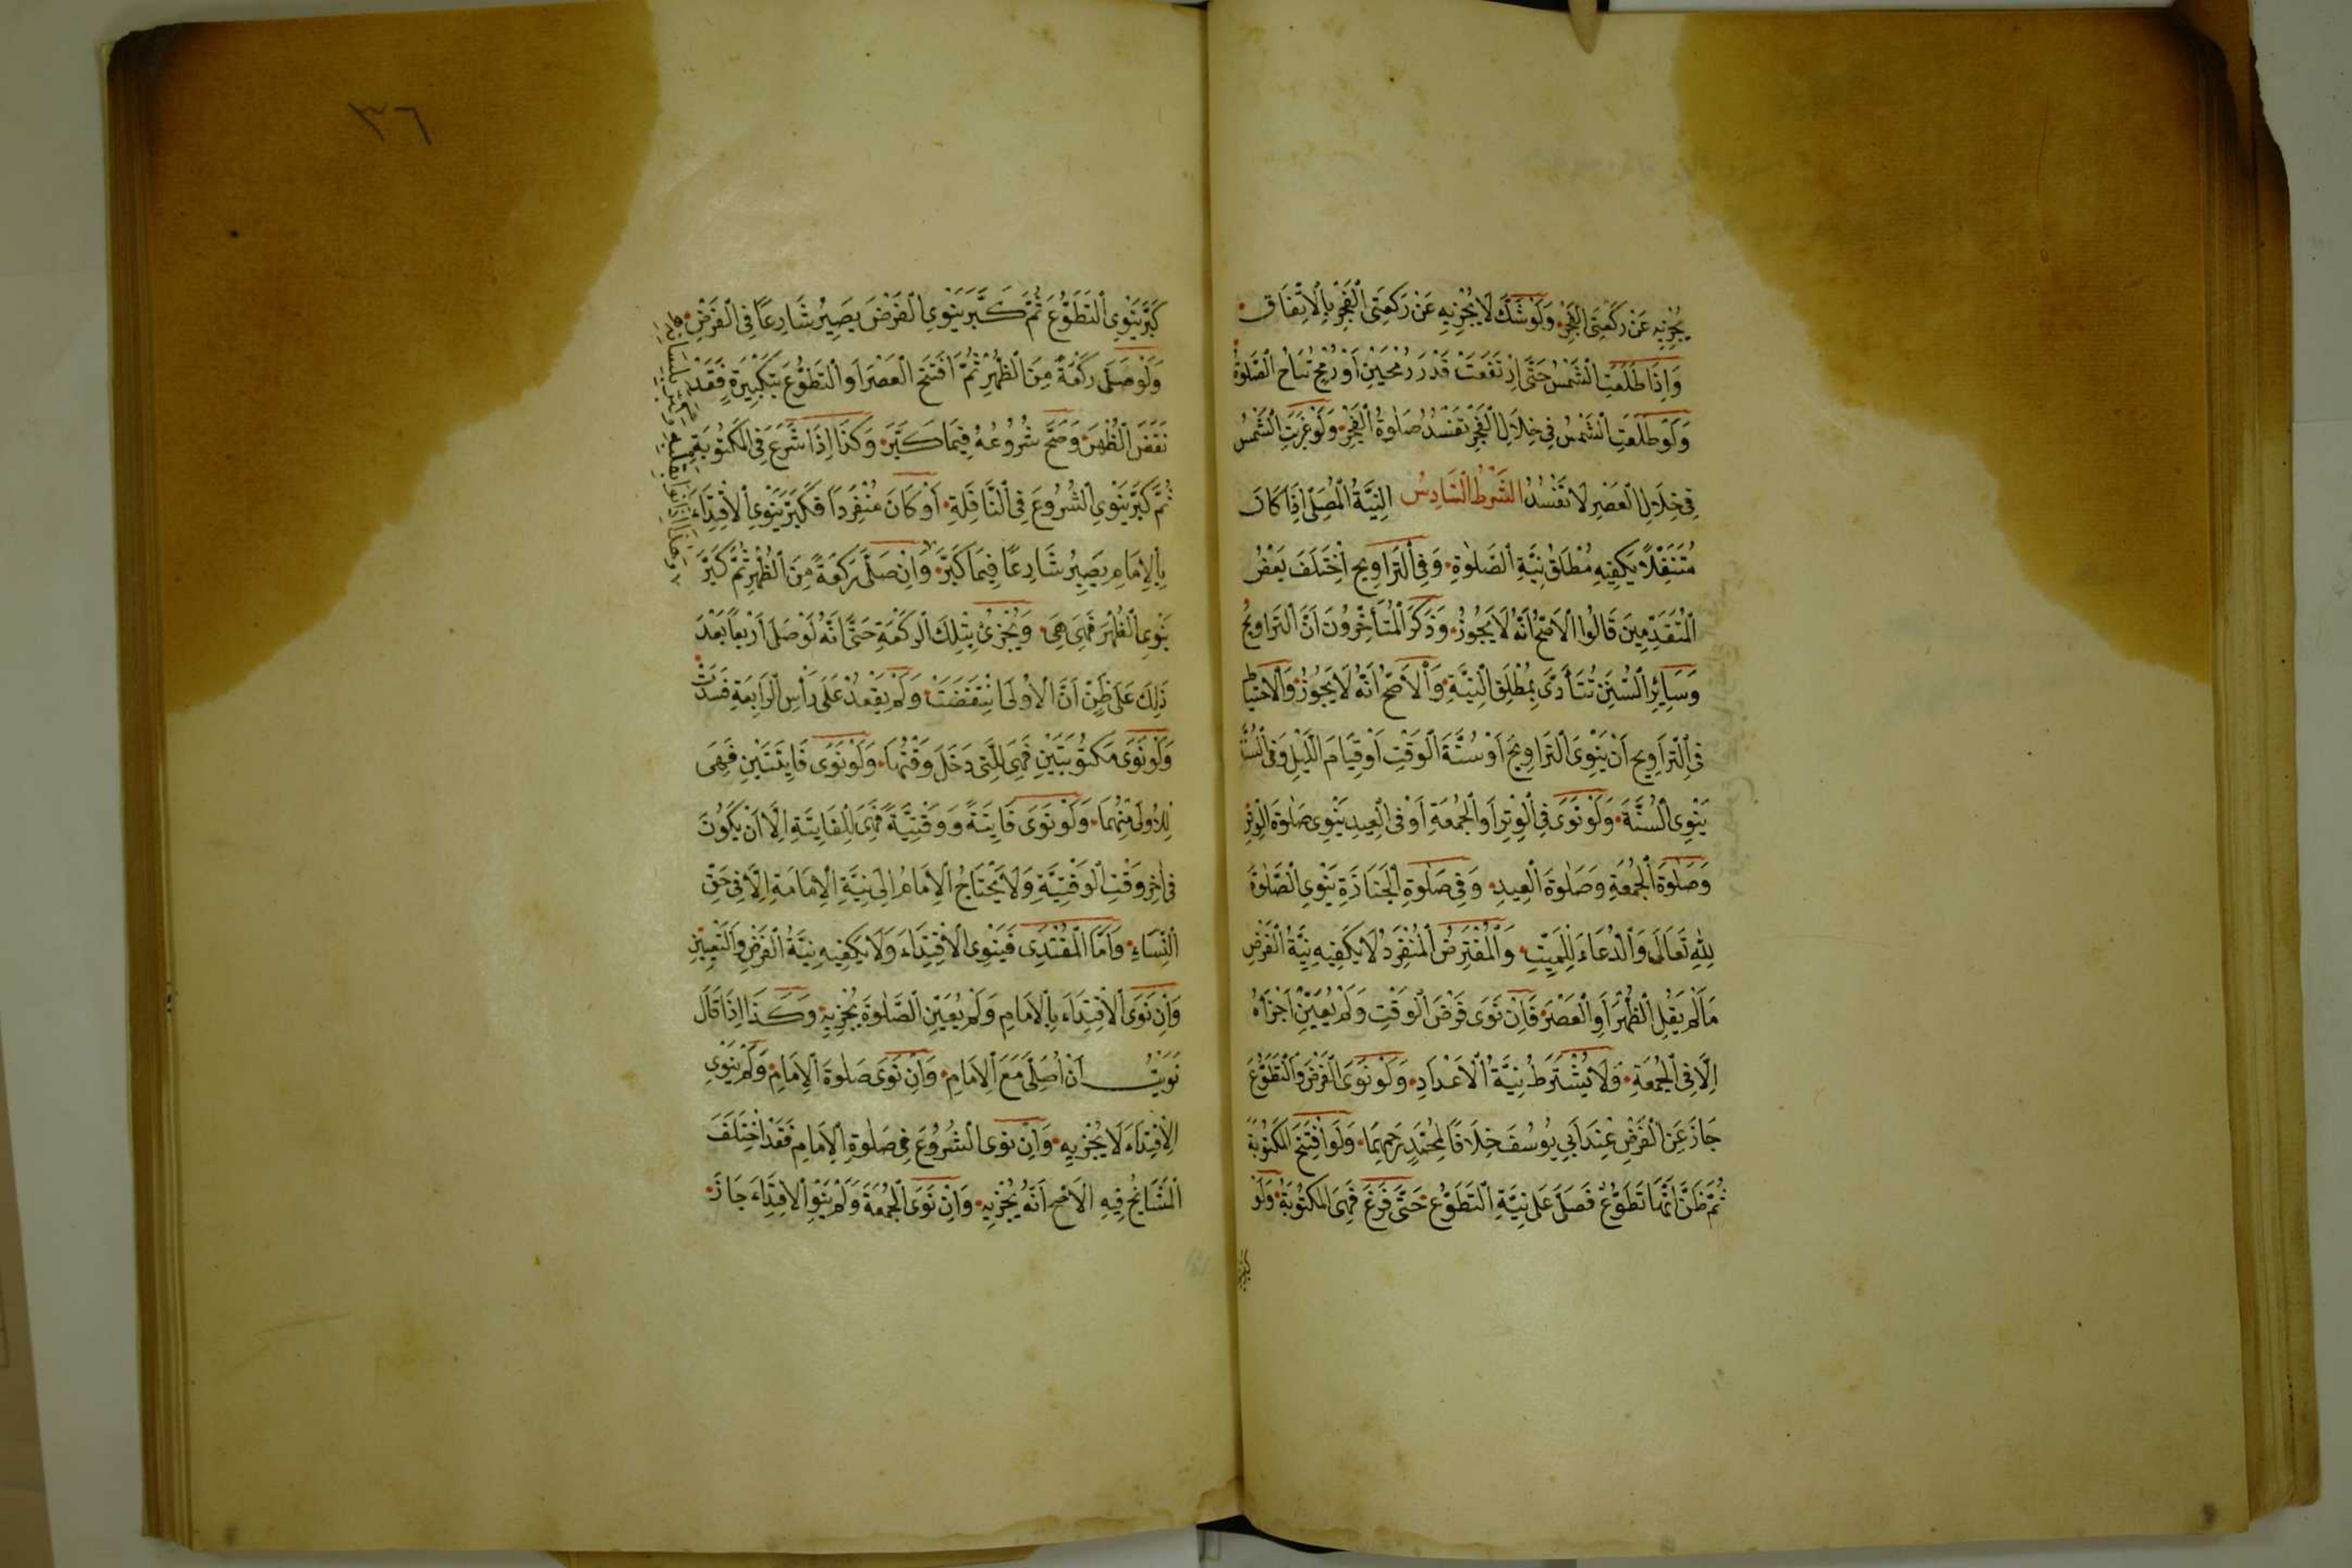 يُجْزِيهِ عَنْ رَكْعَتَىِ الْفَجْرِ وَلَوْ شَكَّ لَا يُجْزِيهِ عَنْ رَكْعَتَىِ الْفَجْرِ بِالْاِتِّفَاقِ
وَاِذَا طَلَعَتِ الشَّمْسُ حَتَّى اِرْتَفَعَتْ قَدْرَ رُمْحَيْنِ اَوْ رُمْحٍ تُبَاحُ الصَّلٰوةُ
وَلَوْ طَلَعَتِ الشَّمْسُ فِي خِلَالِ الْفَجْرِ تَفْسُدُ صَلٰوةُ الْفَجْرِ وَلَوْ غَرَبَتِ الشَّمْسُ
فِي خِلَالِ الْعَصْرِ لَا تَفْسُدُ الشَّرْطُ السَّادِسُ النِّيَّةُ الْمُصَلِّى اِذَا كَانَ
مُتَنَفِّلًا يَكْفِيهِ مُطْلَقُ نِيَّةِ الصَّلٰوةِ وَفِي التَّرَاوِيحِ اخْتَلَفَ بَعْضُ
الْمُتَقَدِّمِينَ قَالُوا الْاَصَحُّ اَنَّهُ لَا يَجُوزُ وَذَكَرَ الْمُتَأَخِّرُونَ اَنَّ التَّرَاوِيحَ
وَسَائِرَ السُّنَنِ تُتَأَدَّى بِمُطْلَقِ النِّيَّةِ وَالْاَصَحُّ اَنَّهُ لَا يَجُوزُ وَالْاحْتِيَاطُ
فِي التَّرَاوِيحِ اَنْ يَنْوِىَ التَّرَاوِيحَ اَوْ سُنَّةَ الْوَقْتِ اَوْ قِيَامَ اللَّيْلِ وَفِى السُّنَّةِ
يَنْوِى السُّنَّةَ وَلَوْ نَوَى فِي الْوِتْرِ اَوِ الْجُمُعَةِ اَوْ فِى الْعِيدِ يَنْوِى صَلٰوةَ الْوِتْرِ
وَصَلٰوةَ الْجُمُعَةِ وَصَلٰوةَ الْعِيدِ وَفِي صَلٰوةِ الْجَنَازَةِ يَنْوِى الصَّلٰوةَ
لِلّٰهِ تَعَالَى وَالدُّعَاءَ لِلْمَيِّتِ وَالْمُفْتَرِضُ الْمُنْفَرِدُ لَا يَكْفِيهِ نِيَّةُ الْفَرْضِ
مَا لَمْ يَقُلِ الظُّهْرَ اَوِ الْعَصْرَ فَاِنْ نَوَى فَرْضَ الْوَقْتِ وَلَمْ يُعَيِّنْ اَجْزَاهُ
اِلَّا فِى الْجُمُعَةِ وَلَا يُشْتَرَطُ نِيَّةُ الْاَعْدَادِ وَلَوْ نَوَى الْفَرْضَ وَالتَّطَوُّعَ
جَازَ عَنِ الْفَرْضِ عِنْدَ اَبِي يُوسُفَ خِلَافًا لِمُحَمَّدٍ رَحِمَهُمَا وَلَوِ افْتَتَحَ الْمَكْتُوبَةَ
ثُمَّ ظَنَّ اَنَّهَا تَطَوُّعٌ فَصَلَّى عَلَى نِيَّةِ التَّطَوُّعِ حَتَّى فَرَغَ فَهِىَ الْمَكْتُوبَةُ وَلَوْ
كبر
٣٦
كَبَّرَ يَنْوِى التَّطَوُّعَ ثُمَّ كَبَّرَ يَنْوِى الْفَرْضَ يَصِيرُ شَارِعًا فِى الْفَرْضِ
وَلَوْ صَلَّى رَكْعَةً مِنَ الظُّهْرِ ثُمَّ افْتَتَحَ الْعَصْرَ اَوِ التَّطَوُّعَ بِتَكْبِيرَةٍ فَقَدْ
نَقَضَ الظُّهْرَ وَصَحَّ شُرُوعُهُ فِيمَا كَبَّرَ وَكَذَا اِذَا شَرَعَ فِى الْمَكْتُوبَةِ
ثُمَّ كَبَّرَ يَنْوِى الشُّرُوعَ فِى النَّافِلَةِ اَوْ كَانَ مُنْفَرِدًا فَكَبَّرَ يَنْوِى الْاِقْتِدَاءَ
بِالْاِمَامِ يَصِيرُ شَارِعًا فِيمَا كَبَّرَ وَاِنْ صَلَّى رَكْعَةً مِنَ الظُّهْرِ ثُمَّ كَبَّرَ
يَنْوِى الظُّهْرَ فَهِىَ هِىَ وَيُجْزِئُ بِتِلْكَ الرَّكْعَةِ حَتَّى اَنَّهُ لَوْ صَلَّى اَرْبَعًا بَعْدَ
ذٰلِكَ عَلَى ظَنِّ اَنَّ الْاُولَى انْتَقَضَتْ وَلَمْ يَقْعُدْ عَلَى رَأْسِ الرَّابِعَةِ فَسَدَتْ
وَلَوْ نَوَى مَكْتُوبَتَيْنِ فَهِىَ لِلَّتِى دَخَلَ وَقْتُهَا وَلَوْ نَوَى فَايِتَتَيْنِ فَهِىَ
لِلْاُولَى مِنْهُمَا وَلَوْ نَوَى فَايِتَةً وَوَقْتِيَّةً فَهِىَ لِلْفَايِتَةِ اِلَّا اَنْ يَكُونَ
فِى اٰخِرِ وَقْتِ الْوَقْتِيَّةِ وَلَا يَحْتَاجُ الْاِمَامُ اِلَى نِيَّةِ الْاِمَامَةِ اِلَّا فِى حَقِّ
النِّسَاءِ وَاَمَّا الْمُقْتَدِى فَيَنْوِى الْاِقْتِدَاءَ وَلَا يَكْفِيهِ نِيَّةُ الْفَرْضِ وَالتَّعْيِينِ
وَاِنْ نَوَى الْاِقْتِدَاءَ بِالْاِمَامِ وَلَمْ يُعَيِّنِ الصَّلٰوةَ يُجْزِيهِ وَكَذَا اِذَا قَالَ
نَوَيْتُ اَنْ اُصَلِّىَ مَعَ الْاِمَامِ وَاِنْ نَوَى صَلٰوةَ الْاِمَامِ وَلَمْ يَنْوِى
الْاِقْتِدَاءَ لَا يُجْزِيهِ وَاِنْ نَوَى الشُّرُوعَ فِى صَلٰوةِ الْاِمَامِ فَقَدِ اخْتَلَفَ
الْمَشَايِخُ فِيهِ الْاَصَحُّ اَنَّهُ يُجْزِيهِ وَاِنْ نَوَى الْجُمُعَةَ وَلَمْ يَنْوِ الْاِقْتِدَاءَ جَازَ